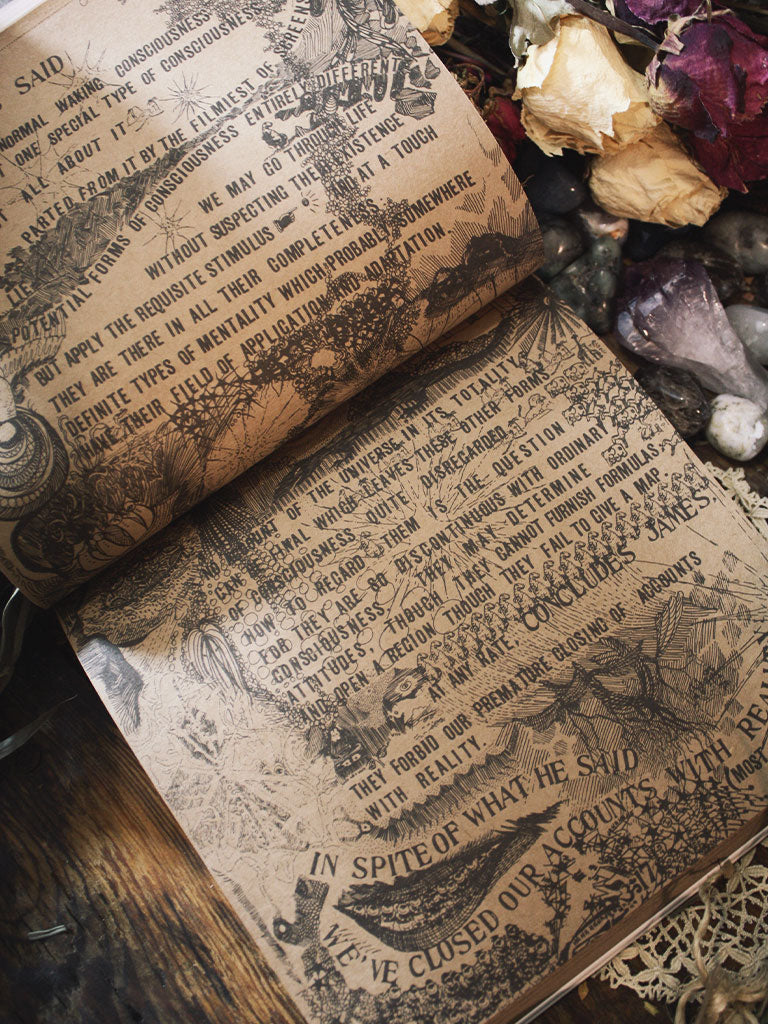 SAID
NORMAL WAKING CONSCIOUSNESS
ONE SPECIAL TYPE OF CONSCIOUSNESS
ALL ABOUT IT
PARTED FROM IT BY THE FILMIEST OF SCREENS
LIE
POTENTIAL FORMS OF CONSCIOUSNESS ENTIRELY DIFFERENT
WE MAY GO THROUGH LIFE
WITHOUT SUSPECTING THEIR EXISTENCE
BUT APPLY THE REQUISITE STIMULUS AND AT A TOUCH
THEY ARE THERE IN ALL THEIR COMPLETENESS
DEFINITE TYPES OF MENTALITY WHICH PROBABLY SOMEWHERE
HAVE THEIR FIELD OF APPLICATION AND ADAPTATION
NO ACCOUNT OF THE UNIVERSE IN ITS TOTALITY
CAN BE FINAL WHICH LEAVES THESE OTHER FORMS
OF CONSCIOUSNESS QUITE DISREGARDED
HOW TO REGARD THEM IS THE QUESTION
FOR THEY ARE SO DISCONTINUOUS WITH ORDINARY
CONSCIOUSNESS. THEY MAY DETERMINE
ATTITUDES, THOUGH THEY CANNOT FURNISH FORMULAS,
AND OPEN A REGION THOUGH THEY FAIL TO GIVE A MAP.
AT ANY RATE, CONCLUDES JAMES,
THEY FORBID OUR PREMATURE CLOSING OF ACCOUNTS
WITH REALITY.
IN SPITE OF WHAT HE SAID
WE'VE CLOSED OUR ACCOUNTS WITH
(MOST